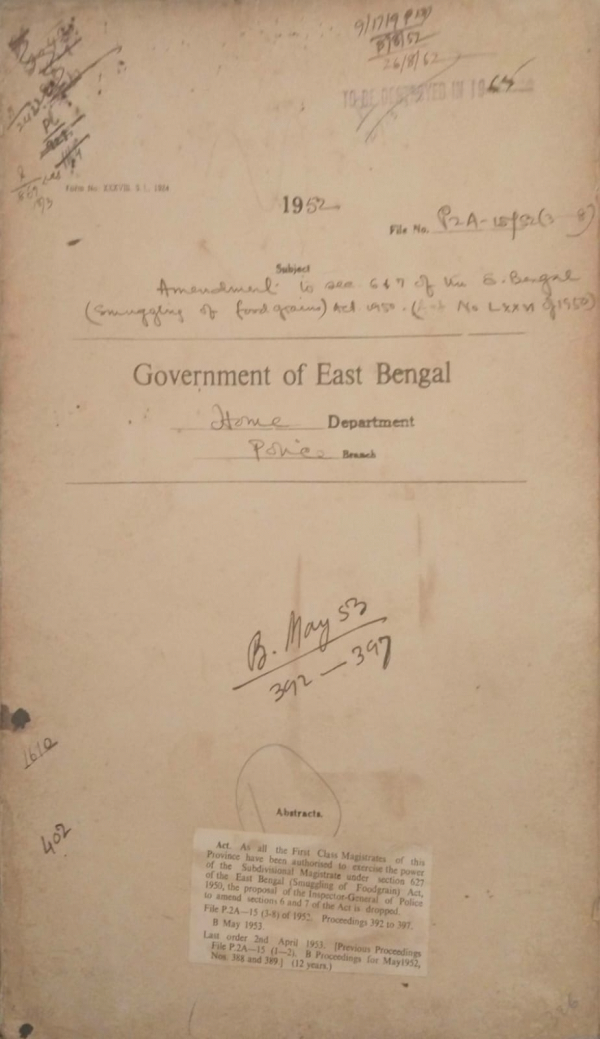 9/17/9 P
B/8/52
26/8/62
TO BE DESTROYED IN 1965
1952
File No. P2A-15/52(3-8)
Subject
Amendment to sec 6 & 7 of the E. Bengal
(Smuggling of foodgrains) Act 1950. (Act No LXXVI of 1950)
Government of East Bengal
Home Department
Police Branch
B. May 53
392 — 397
1610
402
Abstracts.
Act. As all the First Class Magistrates of this
Province have been authorised to exercise the power
of the Subdivisional Magistrate under section 627
of the East Bengal (Smuggling of Foodgrain) Act,
1950, the proposal of the Inspector-General of Police
to amend sections 6 and 7 of the Act is dropped.
File P.2A—15 (3-8) of 1952. Proceedings 392 to 397.
B May 1953.
Last order 2nd April 1953. [Previous Proceedings
File P.2A—15 (1—2), B Proceedings for May1952,
Nos. 388 and 389.] (12 years.)